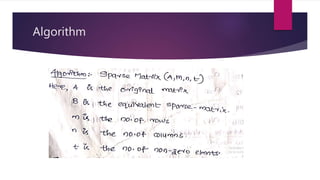 Algorithm
Algorithm:- Sparse Matrix (A,m,n,t)
Here, A is the original matrix
B is the equivalent sparse-matrix.
m is the no.of rows
n is the no.of columns.
t is the no.of non-zero elements.